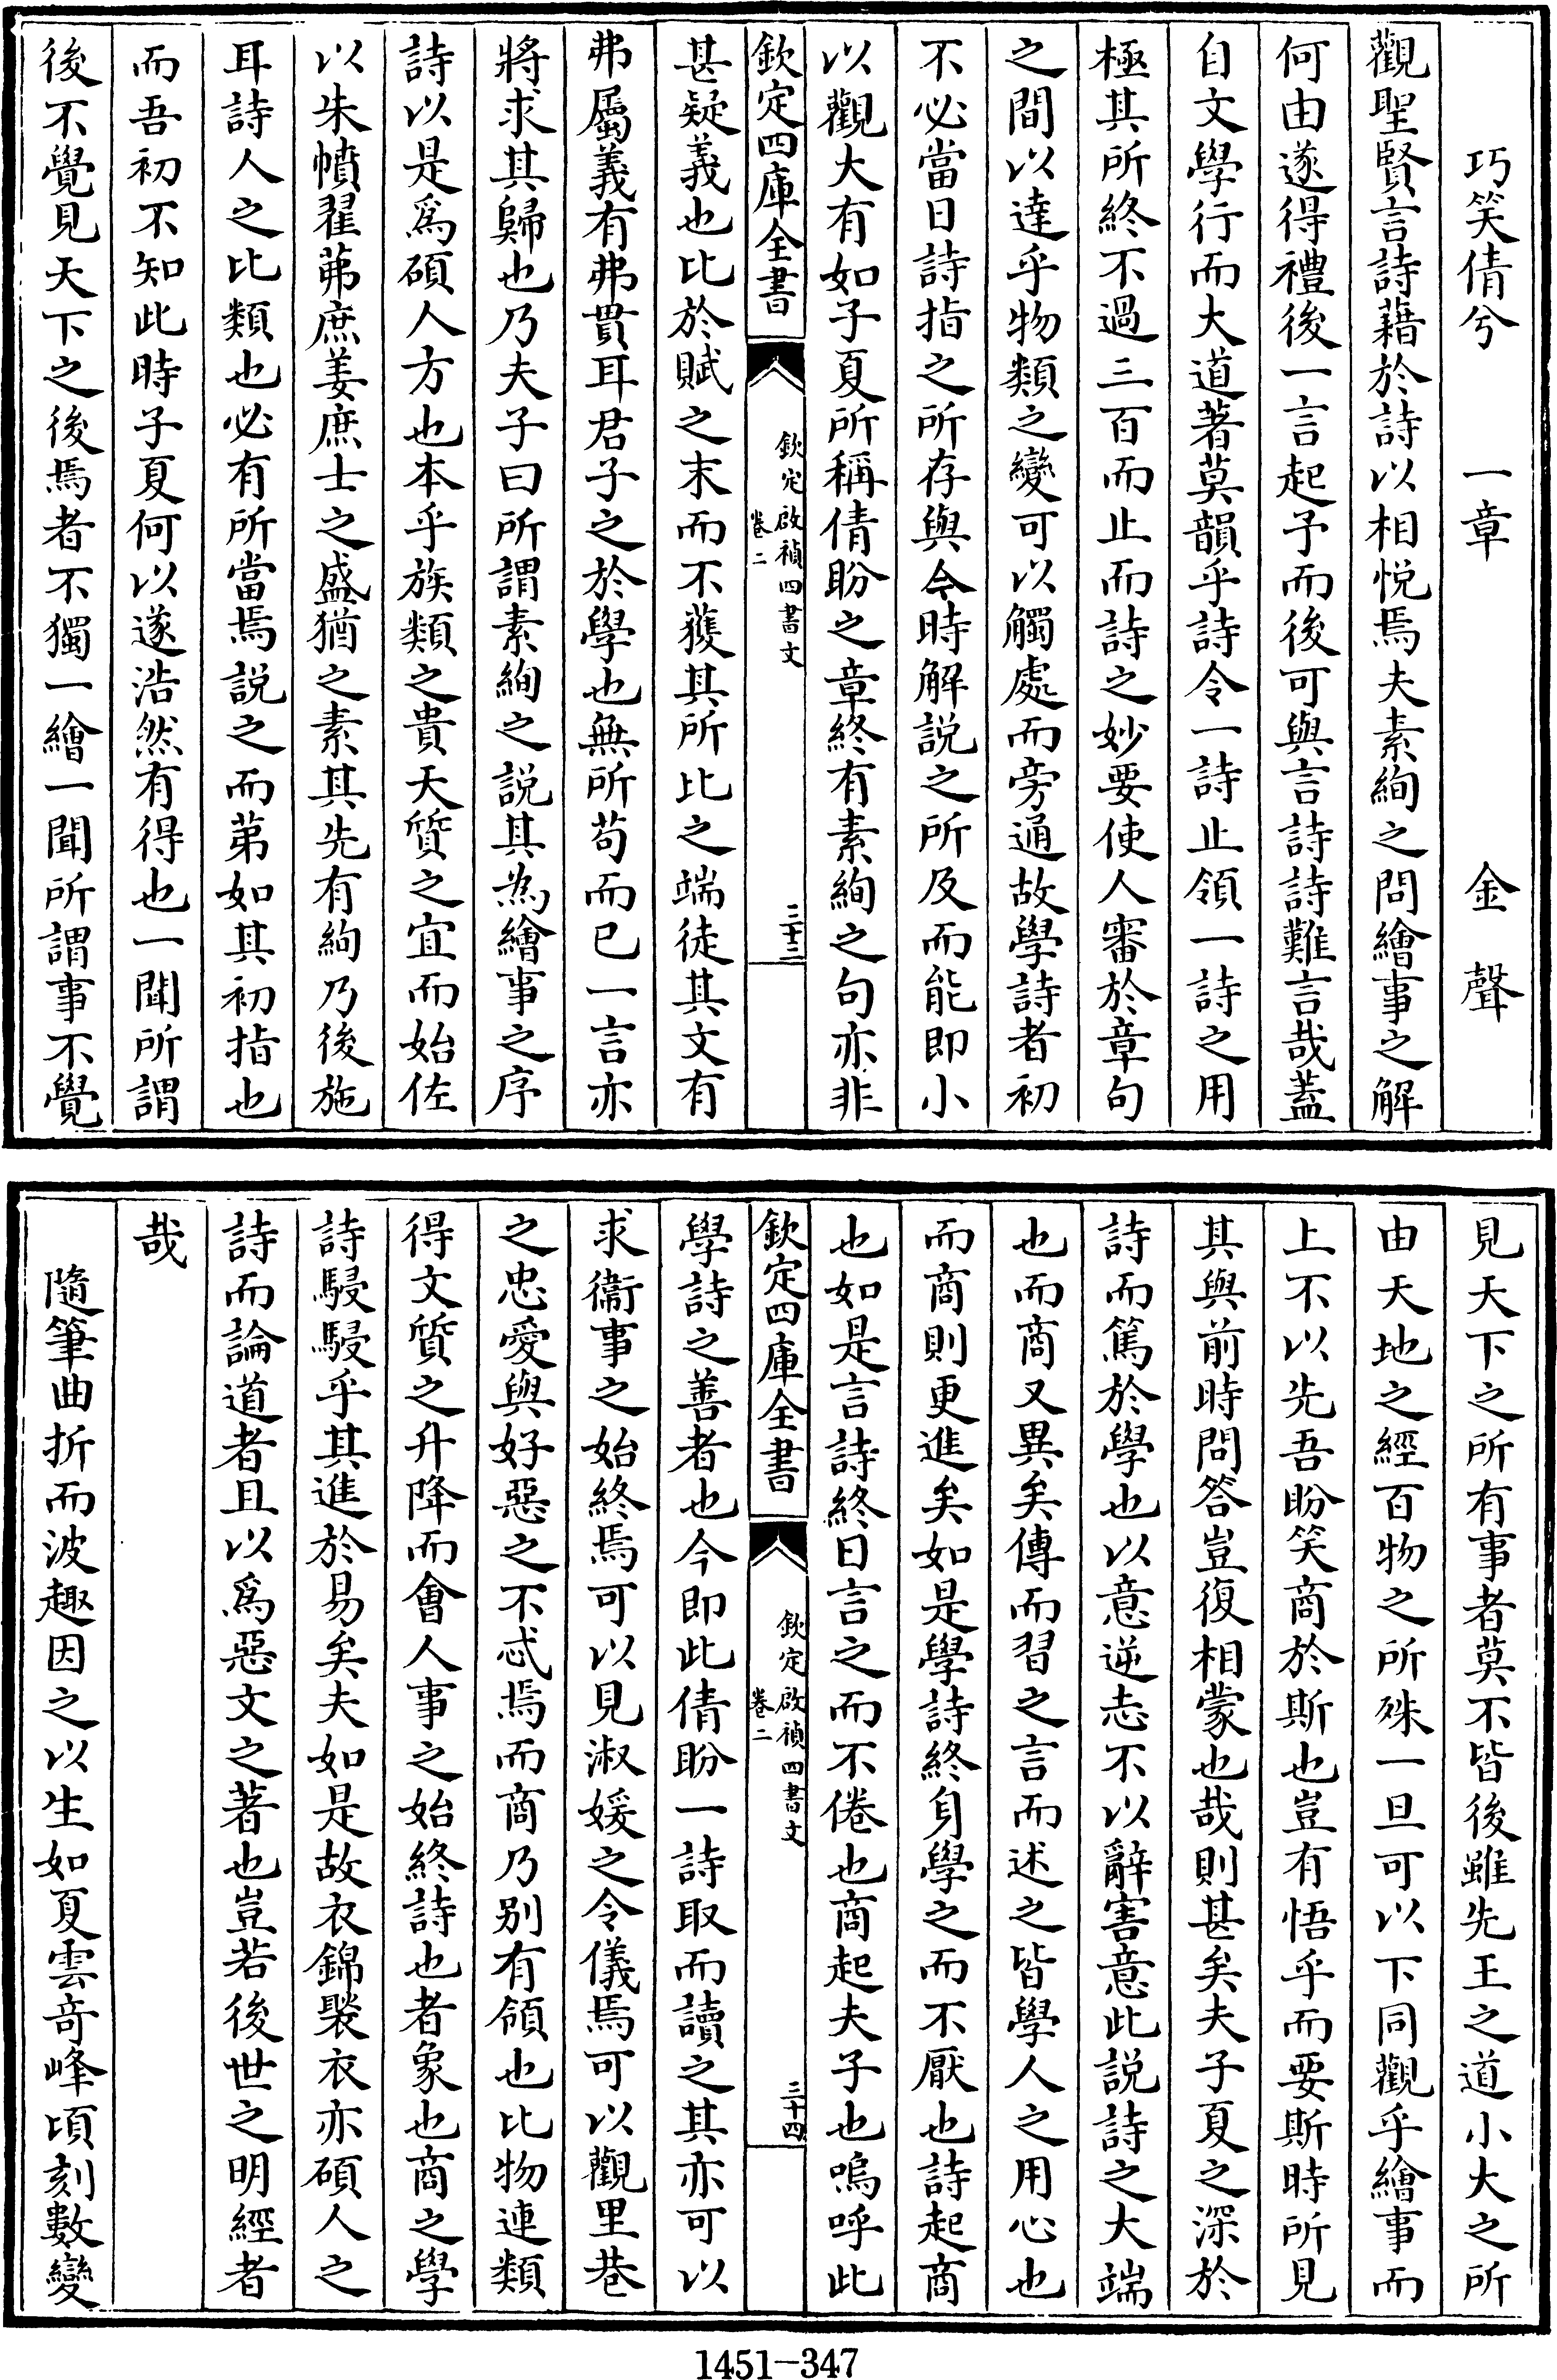 巧笑倩兮　一章　金聲
觀聖賢言詩藉於詩以相悅焉夫素絢之問繪事之解
何由遂得禮後一言起予而後可與言詩詩難言哉蓋
自文學行而大道著莫韻乎詩令一詩止領一詩之用
極其所終不過三百而止而詩之妙要使人審於章句
之間以達乎物類之變可以觸處而旁通故學詩者初
不必當日詩指之所存與今時解說之所及而能即小
以觀大有如子夏所稱倩盼之章終有素絢之句亦非
欽定四庫全書
欽定啟禎四書文
卷二
三十三
甚疑義也比於賦之末而不獲其所比之端徒其文有
弗屬義有弗貫耳君子之於學也無所苟而已一言亦
將求其歸也乃夫子曰所謂素絢之說其為繪事之序
詩以是爲碩人方也本乎族類之貴天質之宜而始佐
以朱幩翟茀庶姜庶士之盛猶之素其先有絢乃後施
耳詩人之比類也必有所當焉說之而弟如其初指也
而吾初不知此時子夏何以遂浩然有得也一聞所謂
後不覺見天下之後焉者不獨一繪一聞所謂事不覺
見天下之所有事者莫不皆後雖先王之道小大之所
由天地之經百物之所殊一旦可以下同觀乎繪事而
上不以先吾盼笑商於斯也豈有悟乎而要斯時所見
其與前時問答豈復相蒙也哉則甚矣夫子夏之深於
詩而篤於學也以意逆志不以辭害意此說詩之大端
也而商又異矣傳而習之言而述之皆學人之用心也
而商則更進矣如是學詩終身學之而不厭也詩起商
也如是言詩終日言之而不倦也商起夫子也嗚呼此
欽定四庫全書
欽定啟禎四書文
卷二
三十四
學詩之善者也今即此倩盼一詩取而讀之其亦可以
求衞事之始終焉可以見淑媛之令儀焉可以觀里巷
之忠愛與好惡之不忒焉而商乃別有領也比物連類
得文質之升降而會人事之始終詩也者象也商之學
詩駸駸乎其進於易矣夫如是故衣錦褧衣亦碩人之
詩而論道者且以爲惡文之著也豈若後世之明經者
哉
隨筆曲折而波趣因之以生如夏雲奇峰頃刻數變
1451-347